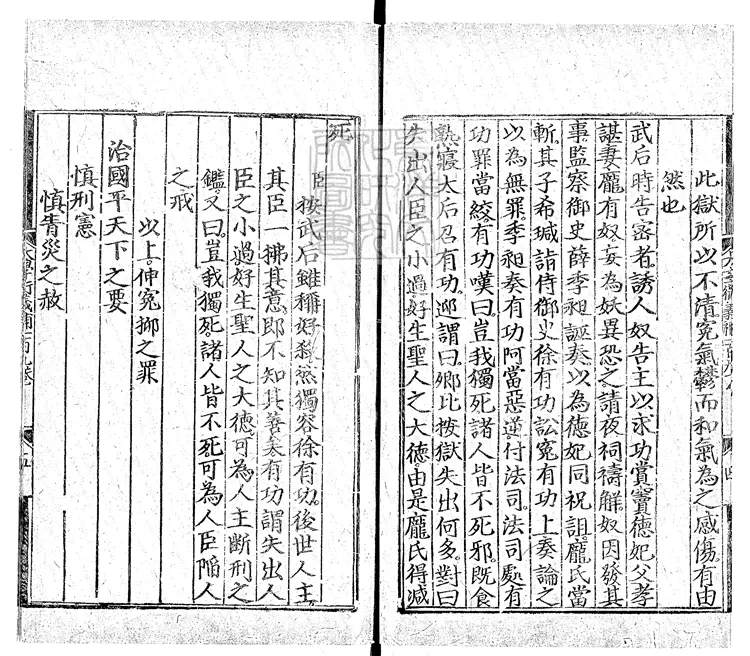 此獄所以不清冤氣鬱而和氣為之感傷有由
然也
武后時告密者誘人奴告主以求功賞竇德妃父孝
諶妻龐有奴妄為妖異恐之請夜祠禱解奴因發其
事監察御史薛季昶誣奏以為德妃同祝詛龐氏當
斬其子希瑊詣侍御史徐有功訟冤有功上奏論之
以為無罪季昶奏有功阿當惡逆付法司法司處有
功罪當絞有功嘆曰豈我獨死諸人皆不死邪既食
熟寢太后召有功迎謂曰卿比按獄失出何多對曰
失出人臣之小過好生聖人之大德由是龐氏得減
死
臣按武后雖稱好殺然獨容徐有功後世人主
其臣一拂其意即不知其善矣有功謂失出人
臣之小過好生聖人之大德可為人主斷刑之
鑑又曰豈我獨死諸人皆不死可為人臣陷人
之戒
以上伸冤抑之罪
治國平天下之要
慎刑憲
慎眚災之赦